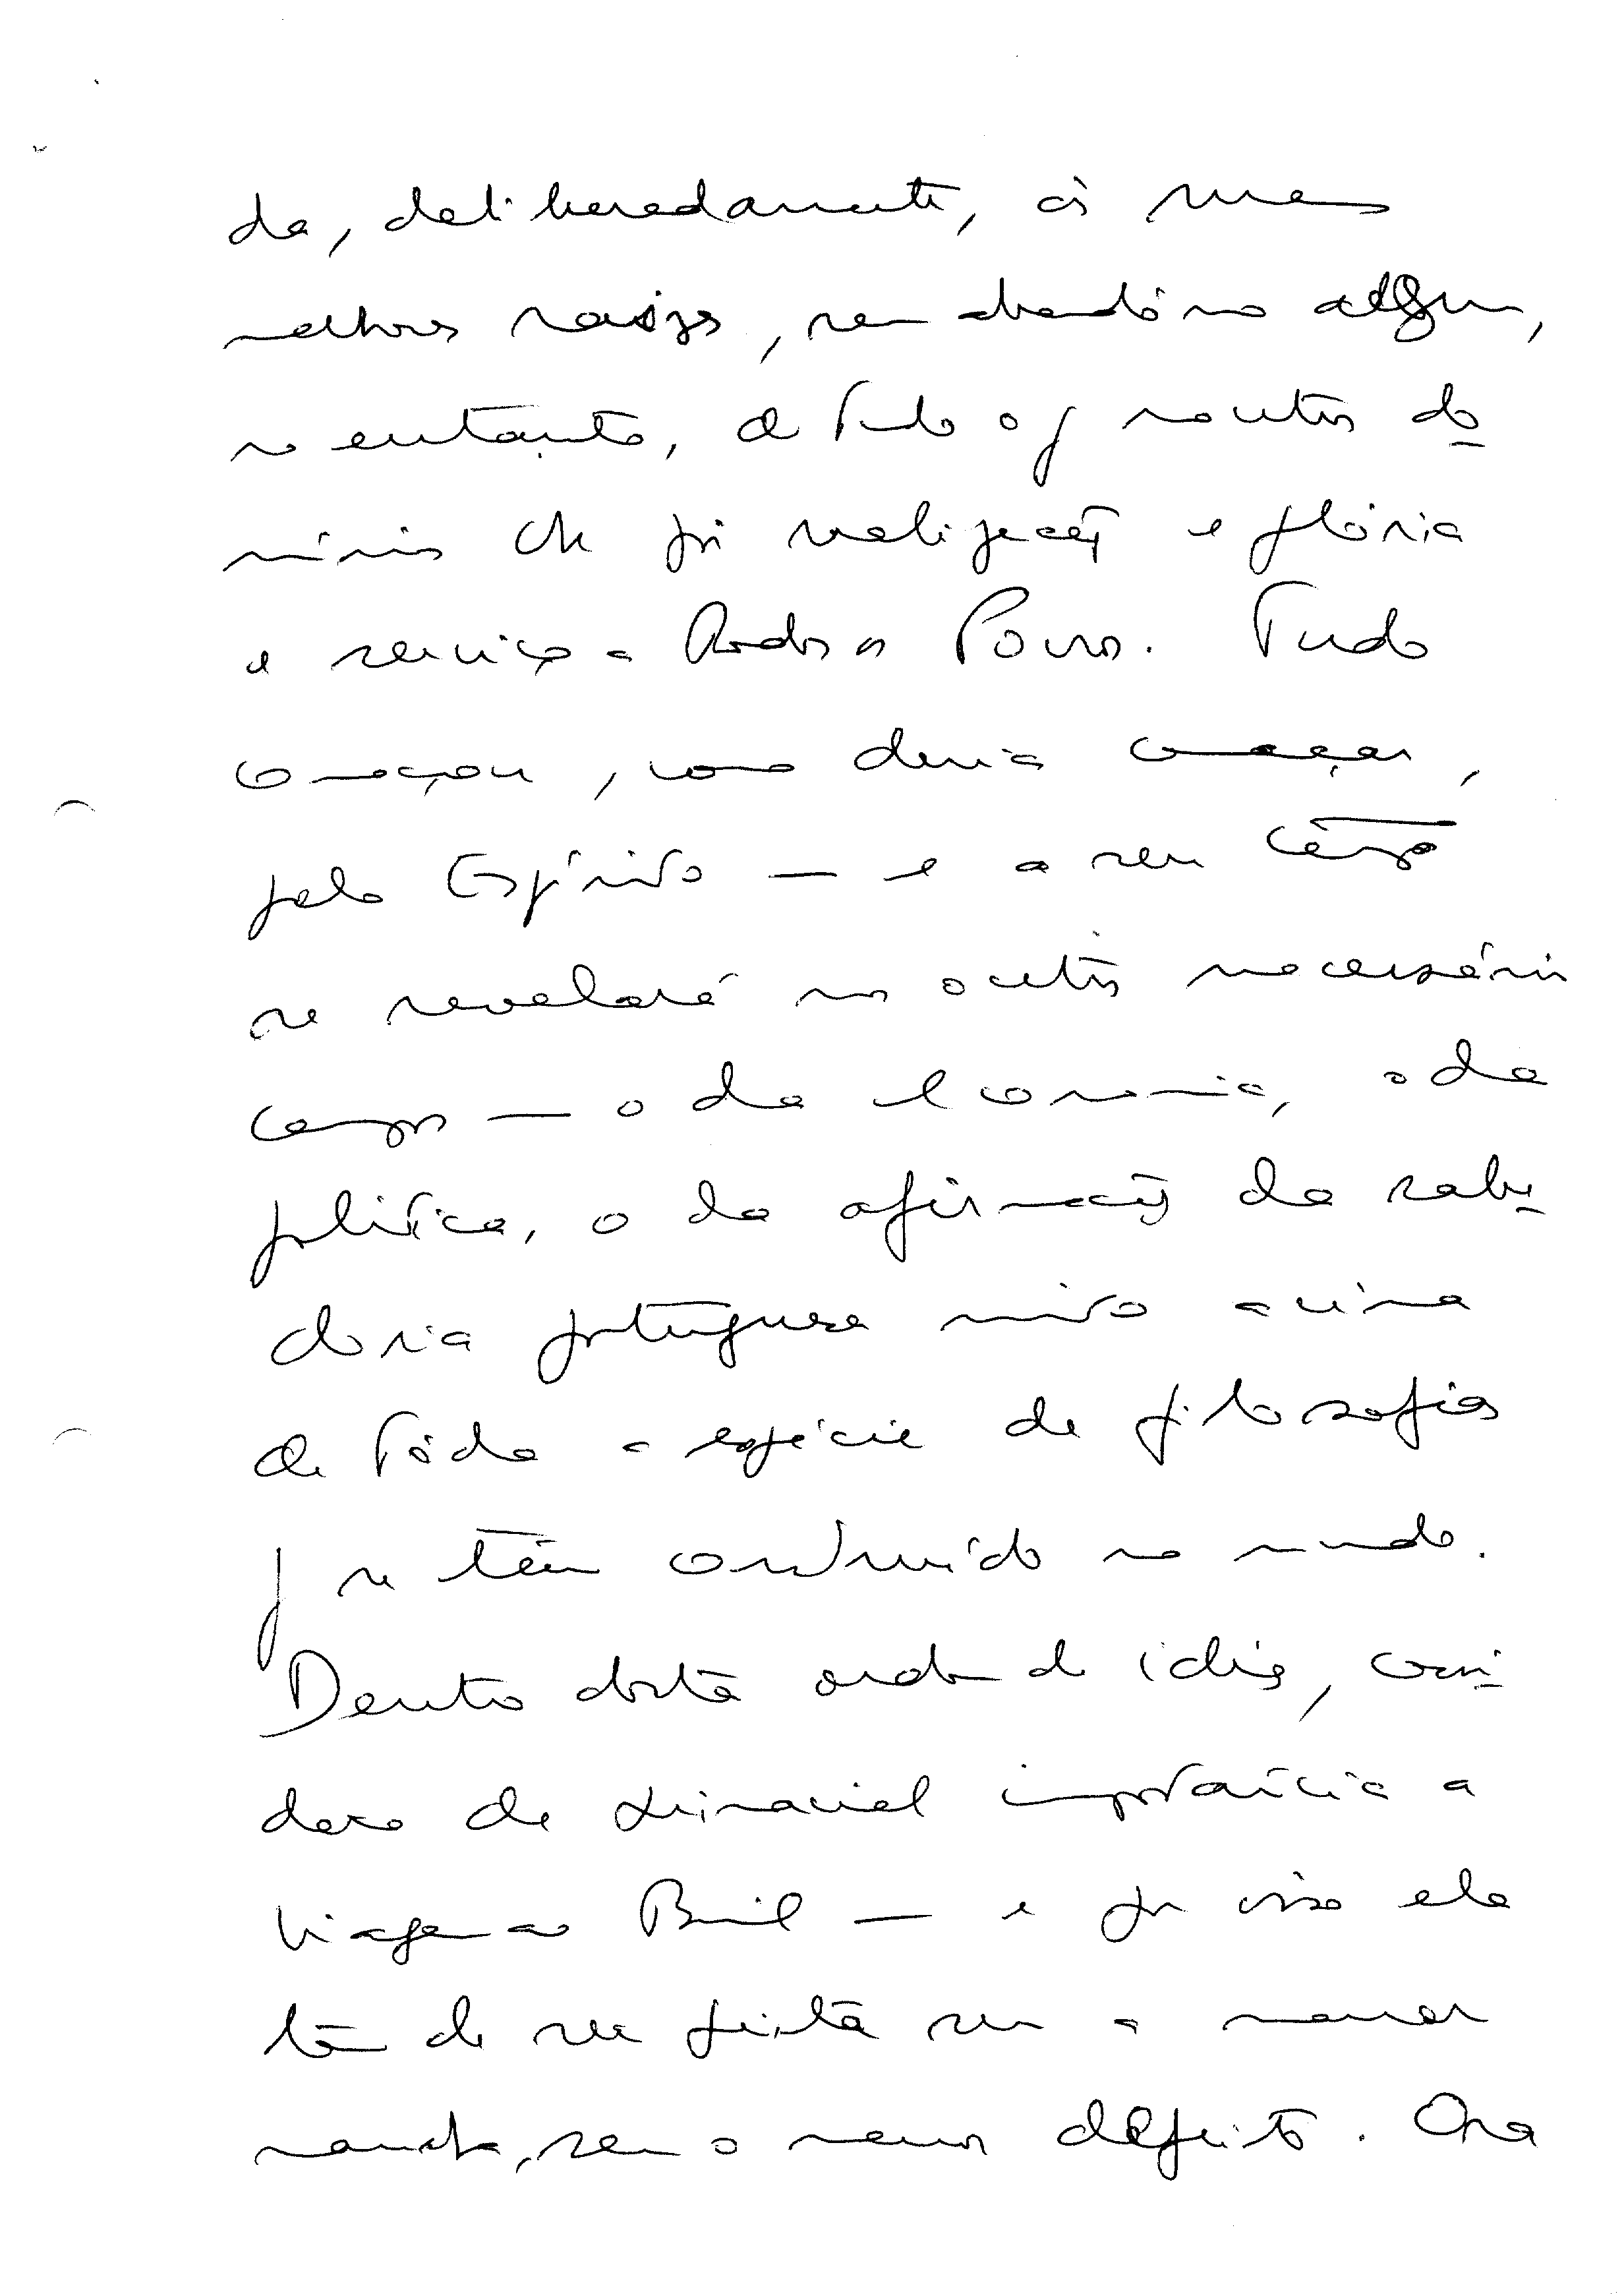 da, deliberadamente, às suas
melhores raízes, sem abandono algum,
no entanto, de tudo o q noutros do-
mínios de foi realização e glória
e serviço a todos os Povos. Tudo
começou, como devia começar,
pelo Espírito — e a seu tempo
se revelará nos outros necessários
campos — o da economia, o da
política, o da afirmação da sabe-
doria portuguesa muito acima
de tôda a espécie de filosofias
q se têm construído no mundo.
Dentro desta ordem de ideias, consi-
dero de primacial importância a
viagem ao Brasil — e por isso ela
tem de ser feita sem a menor
mancha, sem o menor defeito. Ora